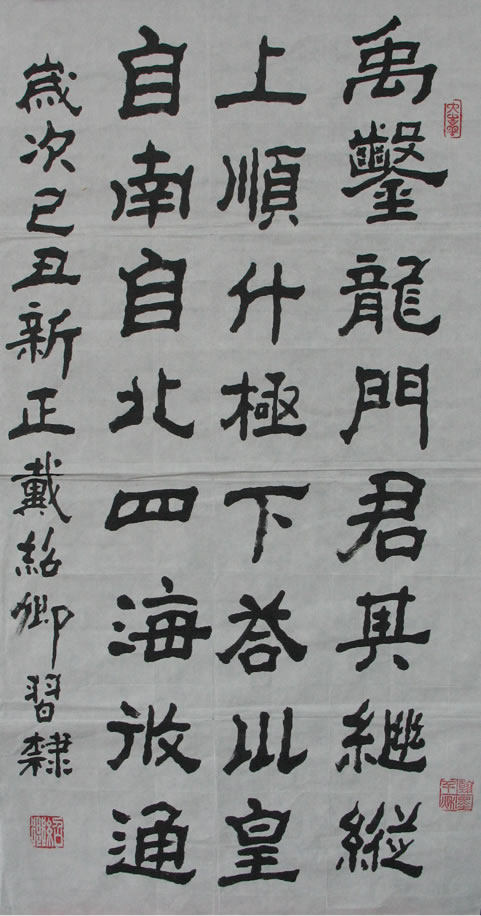 禹鑿龍門君其繼縱
上順斗極下荅巛皇
自南自北四海攸通
歲次己丑新正戴紹卿習隸